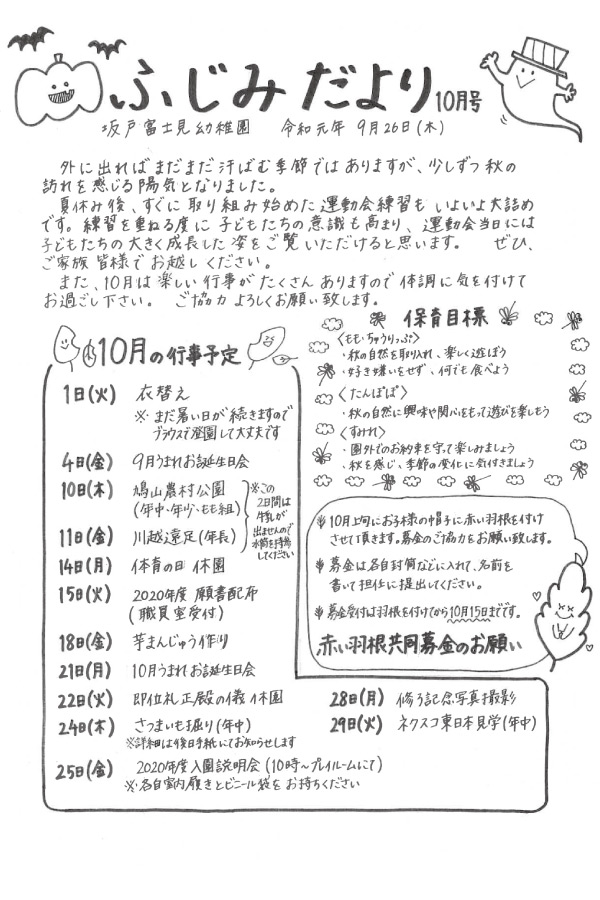 ふじみだより 10月号
坂戸富士見幼稚園 令和元年 9月26日(木)
外に出ればまだまだ汗ばむ季節ではありますが、少しずつ秋の
訪れを感じる陽気となりました。
夏休み後、すぐに取り組み始めた運動会練習もいよいよ大詰め
です。練習を重ねる度に子どもたちの意識も高まり、運動会当日には
子どもたちの大きく成長した姿をご覧いただけると思います。 ぜひ、
ご家族皆様でお越しください。
また、10月は楽しい行事がたくさんありますので体調に気を付けて
お過ごし下さい。 ご協力よろしくお願い致します。
保育目標
〈もも・ちゅうりっぷ〉
・秋の自然を取り入れ、楽しく遊ぼう
・好き嫌いをせず、何でも食べよう
〈たんぽぽ〉
・秋の自然に興味や関心をもって遊びを楽しもう
〈すみれ〉
・園外でのお約束を守って楽しみましょう
・秋を感じ、季節の変化に気付きましょう
10月の行事予定
1日(火) 衣替え
※まだ暑い日が続きますので
ブラウスで登園して大丈夫です
4日(金) 9月うまれお誕生日会
10日(木) 鳩山農村公園
(年中・年少・もも組)
11日(金) 川越遠足(年長)
※この
2日間は
牛乳が
出ませんので
水筒を持参
してください
14日(月) 体育の日 休園
15日(火) 2020年度 願書配布
(職員室受付)
18日(金) 芋まんじゅう作り
21日(月) 10月うまれお誕生日会
22日(火) 即位礼正殿の儀 休園
24日(木) さつまいも掘り(年中)
※詳細は後日手紙にてお知らせします
25日(金) 2020年度入園説明会(10時〜プレイルームにて)
※各自室内履きとビニール袋をお持ちください
28日(月) 修了記念写真撮影
29日(火) ネクスコ東日本見学(年中)
10月上旬にお子様の帽子に赤い羽根を付け
させて頂きます。募金のご協力をお願い致します。
募金は各自封筒などに入れて、名前を
書いて担任に提出してください。
募金受付は羽根を付けてから10月15日までです。
赤い羽根共同募金のお願い